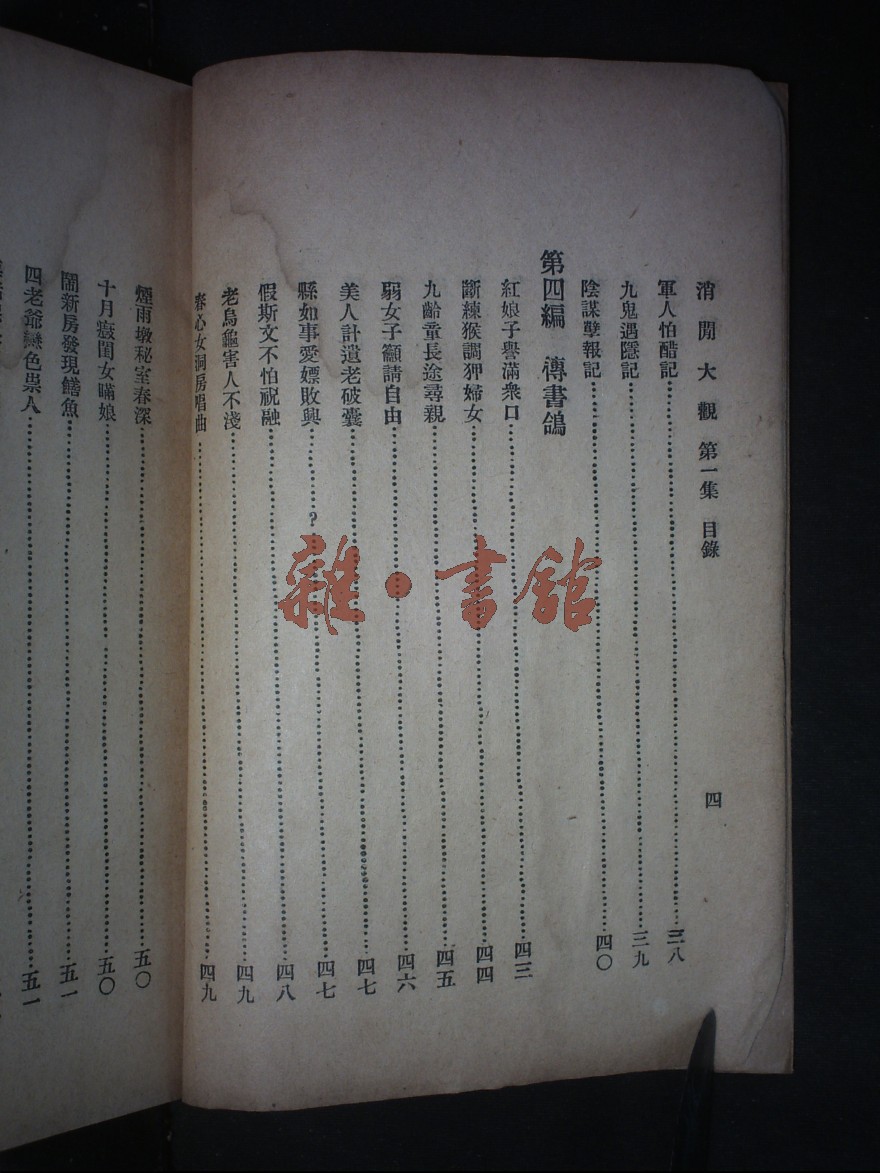 消閒大觀 第一集 目錄 四
軍人怕醋記 三八
九鬼遇隱記 三九
陰謀孽報記 四〇
第四編 傳書鴿
紅娘子譽滿衆口 四三
斷練猴調狎婦女 四四
九齡童長途尋親 四五
弱女子籲請自由 四六
美人計遺老破囊 四七
縣知事愛嫖敗興 ? 四七
假斯文不怕祝融 四八
老烏龜害人不淺 四九
春心女洞房唱曲 四九
煙雨墩秘室春深 五〇
十月癍閨女瞞娘 五〇
鬧新房發現鱔魚 五一
四老爺戀色祟人 五一
雜·書館